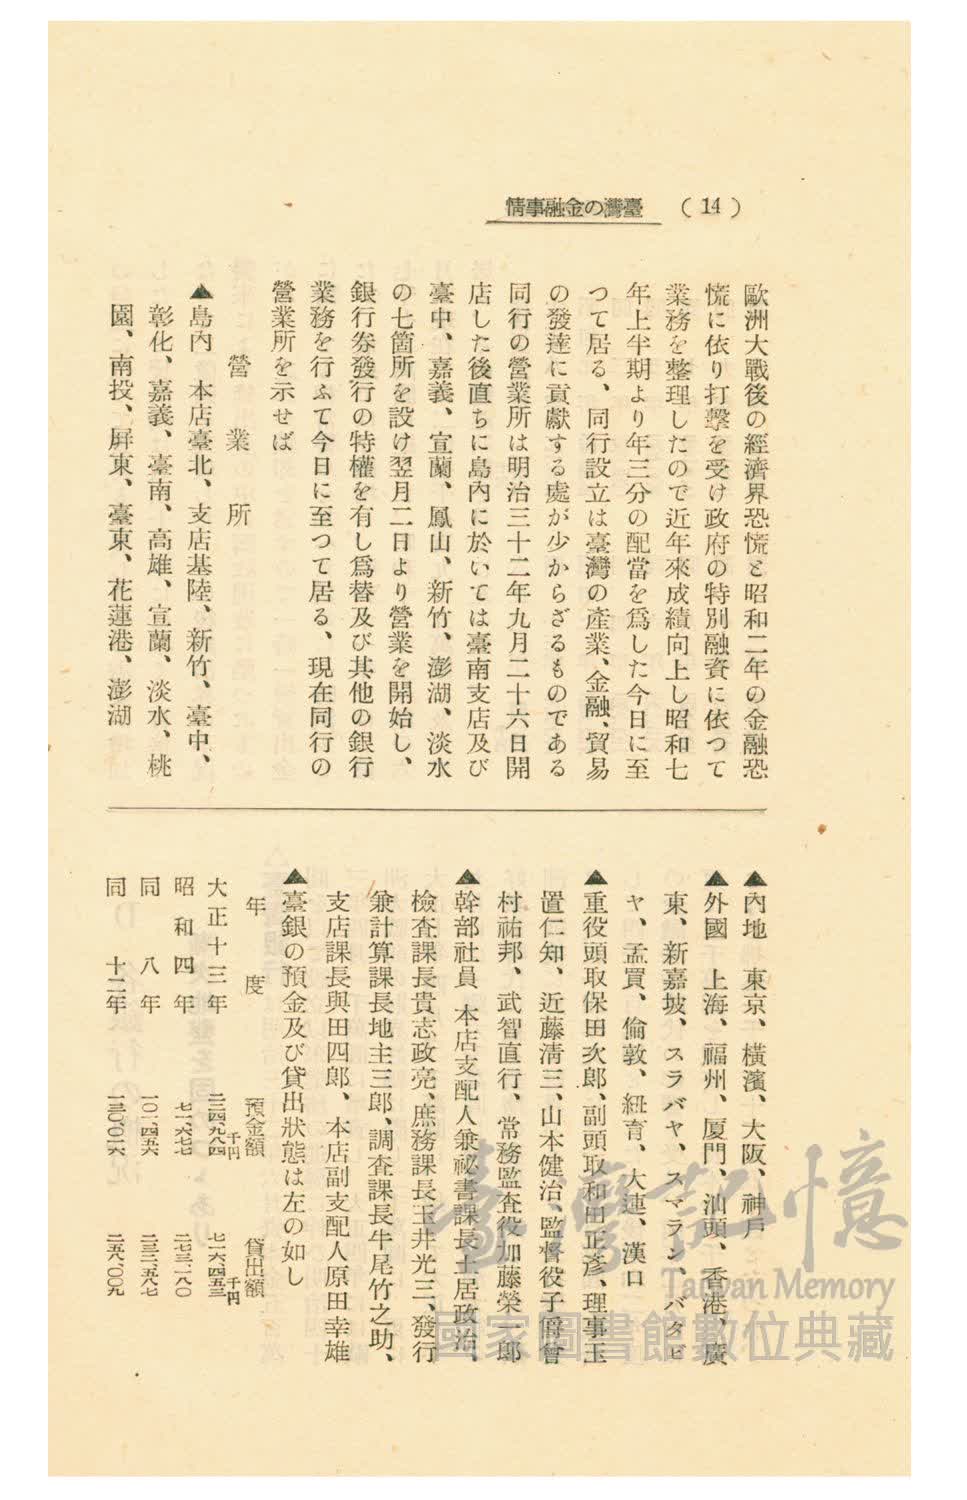 (14) 臺灣の金融事情
歐洲大戰後の經濟界恐慌と昭和二年の金融恐
慌に依り打擊を受け政府の特別融資に依つて
業務を整理したので近年來成績向上し昭和七
年上半期より年三分の配當を爲した今日に至
つて居る、同行設立は臺灣の產業、金融、貿易
の發達に貢獻する處が少からざるものである
同行の營業所は明治三十二年九月二十六日開
店した後直ちに島內に於いては臺南支店及び
臺中、嘉義、宣蘭、鳳山、新竹、澎湖、淡水
の七箇所を設け翌月二日より營業を開始し、
銀行券發行の特權を有し爲替及び其他の銀行
業務を行ふて今日に至つて居る、現在同行の
營業所を示せば
營業所
▲島內 本店臺北、支店基陸、新竹、臺中、
彰化、嘉義、臺南、高雄、宣蘭、淡水、桃
園、南投、屏東、臺東、花蓮港、澎湖
▲內地 東京、橫濱、大阪、神戶
▲外國 上海、福州、厦門、汕頭、香港、廣
東、新嘉坡、スラバヤ、スマラン、バタビ
ヤ、孟買、倫敦、紐育、大連、漢口
▲重役頭取保田次郎、副頭取和田正彥、理事玉
置仁知、近藤淸三、山本健治、監督役子爵曾
村祐邦、武智直行、常務監査役加藤榮一郎
▲幹部社員 本店支配人兼祕書課長土居政治、
檢査課長貴志政亮、庶務課長玉井光三、發行
兼計算課長地主三郎、調査課長牛尾竹之助、
支店課長與田四郎、本店副支配人原田幸雄
▲臺銀の預金及び貸出狀態は左の如し
年度 預金額 貸出額
大正十三年 二二四、九八四千円 七一六、四五三千円
昭和四年 七一、六七七 二七三、一八〇
同八年 一〇一、四五六 二三二、五八七
同十二年 一三〇、〇二六 二五八、〇〇九
臺灣記憶
Taiwan Memory
國家圖書館數位典藏